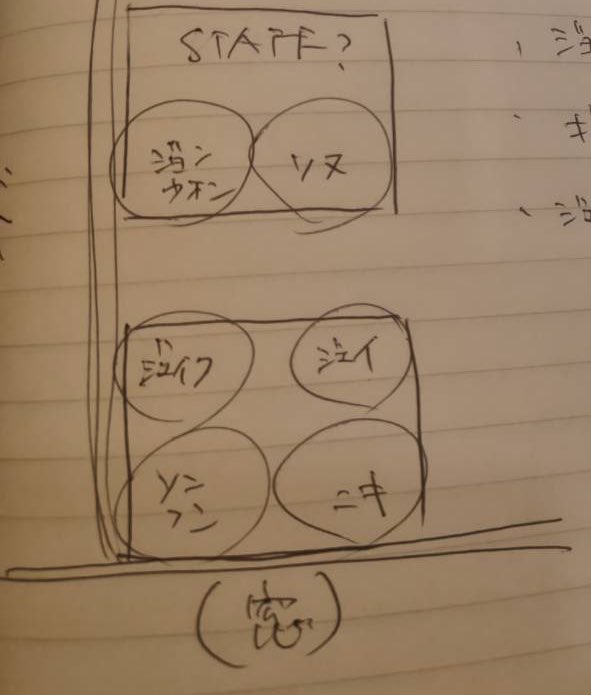 STAFF?
ジョン
ウォン
ソヌ
ジェイク
ジェイ
ソン
フン
ニキ
(窓)